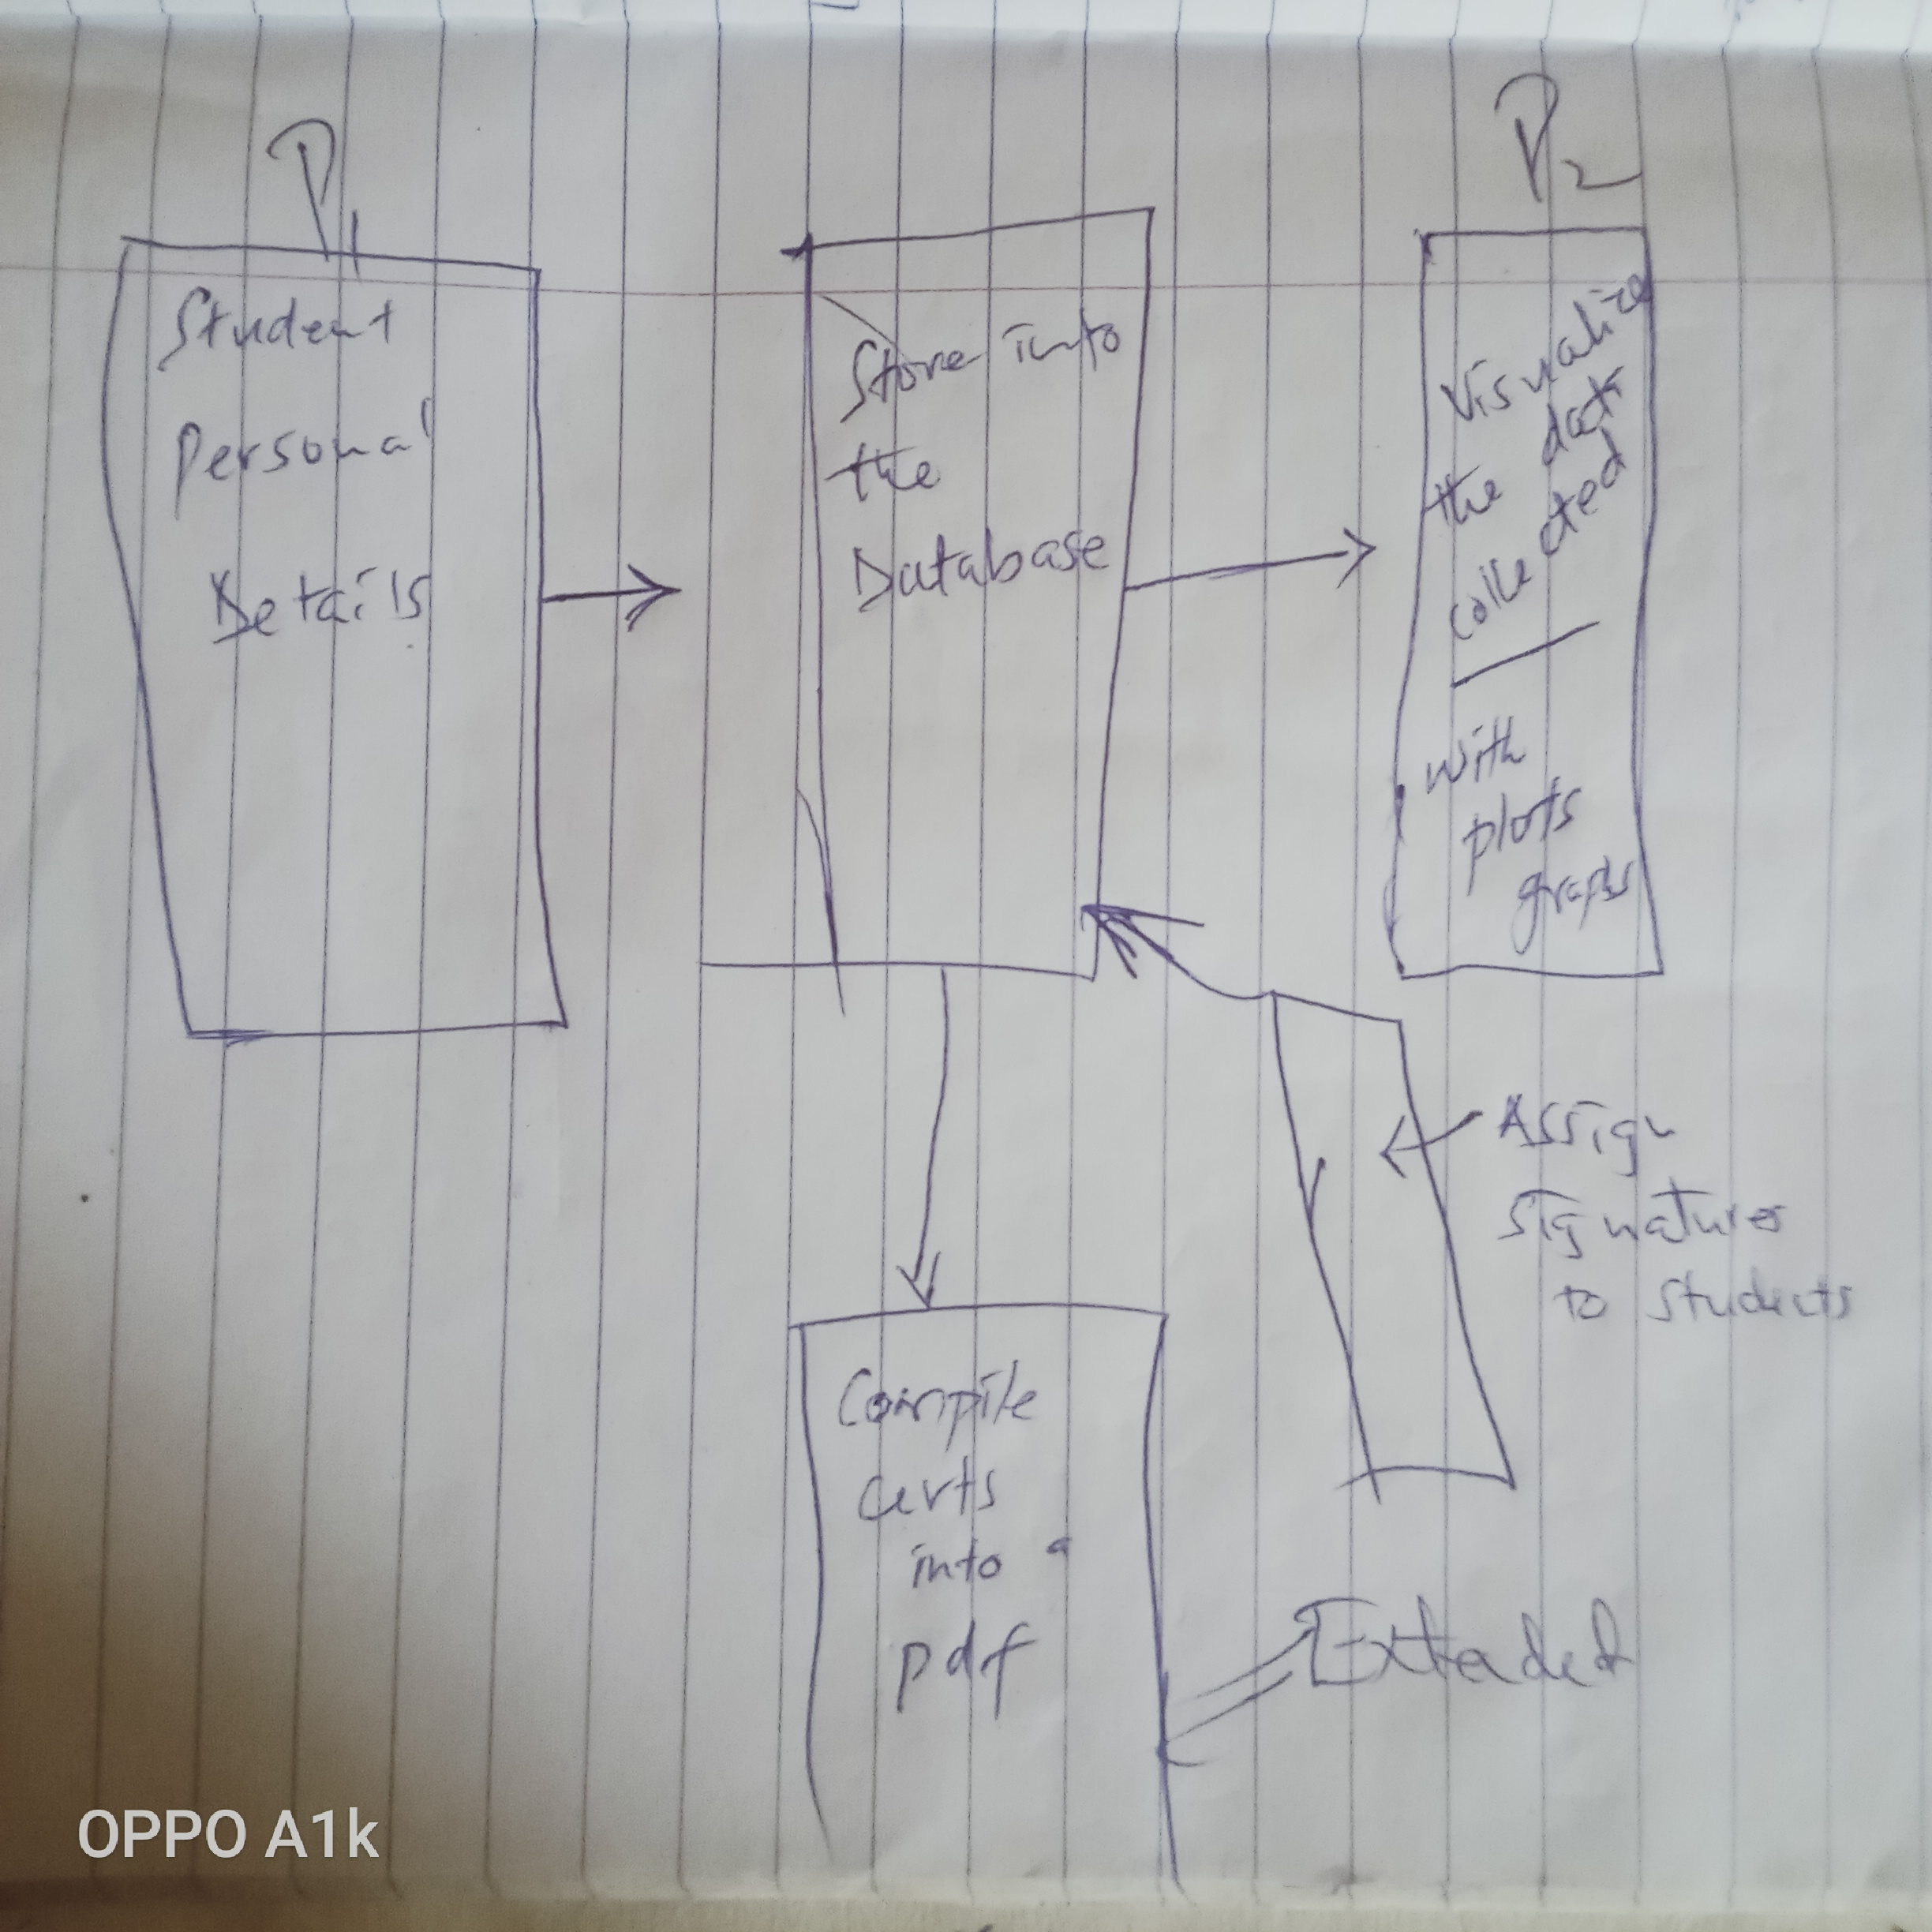 P1
Student
Personal
Details
Store into
the
Database
P2
Visualize
the data
collected
with
plots
graphs
Assign
Signatures
to students
Compile
certs
into a
pdf
Extended
OPPO A1k